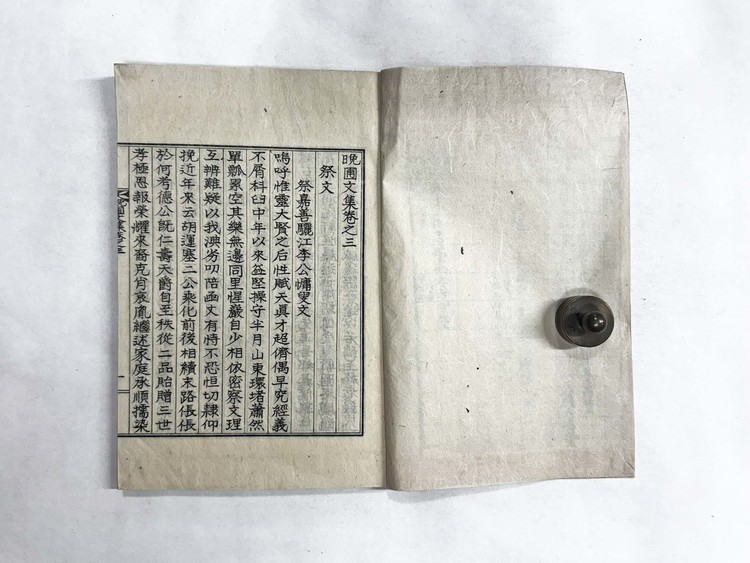 晩圃文集卷之三
祭文
祭嘉善驪江李公慵叟文
嗚呼惟靈大賢之后性賦天眞才超儕偶早究經義
不屑科臼中年以來益堅操守半月山東環堵蕭然
單瓢累空其樂無邊同里惺嚴自少相依密察文理
互辨難疑以我湙劣叨陪函丈有恃不恐恒切隷仰
挽近年來云胡運蹇二公乘化前後相續末路倀倀
於何考德公旣仁壽天爵自至秩從二品貽贈三世
孝極思報榮耀來裔克肖哀胤繼述家庭承順擩染